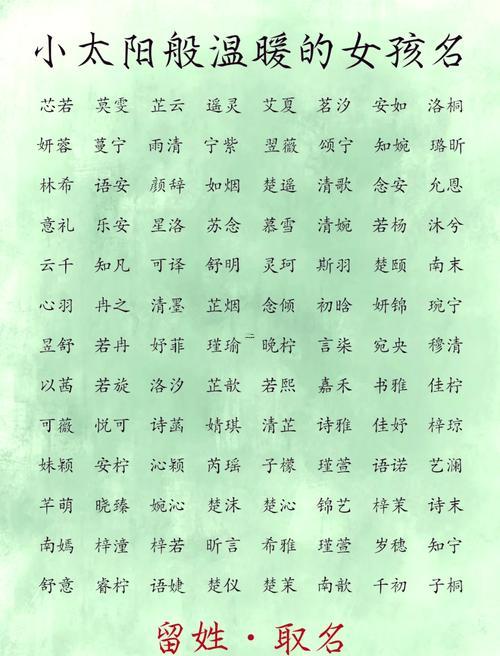 小太阳般温暖的女孩名
芯若 莫雯 芷云 遥灵 艾夏 茗汐 安如 洛桐
妍蓉 蔓宁 雨清 宁紫 翌薇 颂宁 知婉 璐昕
林希 语安 颜辞 如烟 楚遥 清歌 念安 允恩
意礼 乐安 星洛 苏念 慕雪 清婉 若杨 沐兮
云千 知凡 可译 舒明 灵珂 斯羽 楚颐 南末
心羽 冉之 清墨 芷烟 念倾 初晗 妍锦 琬宁
昱舒 若冉 妤菲 瑾瑜 晚柠 言柒 宛央 穆清
以茜 若旋 洛汐 芷歆 若熙 嘉禾 书雅 佳柠
可薇 悦可 诗菡 婧琪 清芷 诗雅 佳妤 梓琼
姝颖 安柠 沁颖 芮瑶 子檬 瑾萱 语诺 艺澜
芊萌 晓臻 婉沁 楚沫 楚沁 锦艺 梓茉 诗末
南嫣 梓潼 梓若 昕言 希雅 瑾萱 岁穗 知宁
舒意 睿柠 语婕 楚仪 楚茉 南歆 千初 子桐
留姓·取名